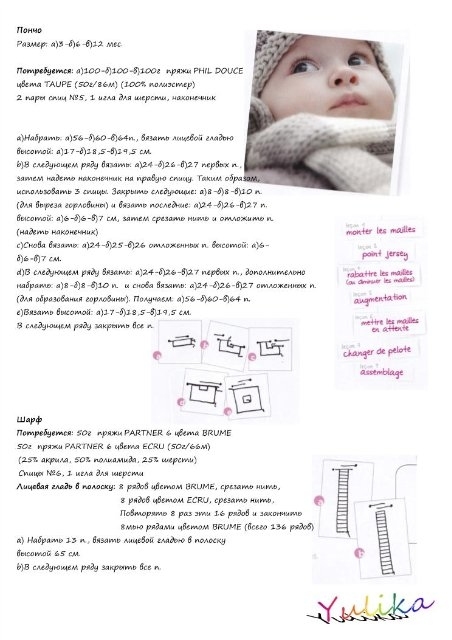 Пончо
Размер: а)3-б)6-в)12 мес
Потребуется: а)100-б)100-в)100г пряжи PHIL DOUCE
цвета TAUPE (50г/86м) (100% полиэстер)
2 пары спиц №5, 1 игла для шерсти, наконечник
а)Набрать: а)56-б)60-в)64п., вязать лицевой гладью
высотой: а)17-б)18,5-в)19,5 см.
b)В следующем ряду вязать: а)24-б)26-в)27 первых п.,
затем надеть наконечник на правую спицу. Таким образом,
использовать 3 спицы. Закрыть следующие: а)8-б)8-в)10 п.
(для выреза горловины) и вязать последние: а)24-б)26-в)27 п.
высотой: а)6-б)6-в)7 см, затем срезать нить и отложить п.
(надеть наконечник)
с)Снова вязать: а)24-б)25-в)26 отложенных п. высотой: а)6-
б)6-в)7 см.
d)В следующем ряду вязать: а)24-б)26-в)27 первых п., дополнительно
набрать: а)8-б)8-в)10 п. и снова вязать: а)24-б)26-в)27 отложенных п.
(для образования горловины). Получаем: а)56-б)60-в)64 п.
е)Вязать высотой: а)17-в)18,5-в)19,5 см.
В следующем ряду закрыть все п.
leçon 1
monter les mailles
leçon 2
point jersey
leçon 4
rabattre les mailles
(ou diminuer les mailles)
augmentation
mettre les mailles
en attente
changer de pelote
assemblage
a
b
c
d
e
Шарф
Потребуется: 50г пряжи PARTNER 6 цвета BRUME
50г пряжи PARTNER 6 цвета ECRU (50г/66м)
(25% акрила, 50% полиамида, 25% шерсти)
Спицы №6, 1 игла для шерсти
Лицевая гладь в полоску: 8 рядов цветом BRUME, срезать нить,
8 рядов цветом ECRU, срезать нить,
Повторять 8 раз эти 16 рядов и закончить
8мью рядами цветом BRUME (всего 136 рядов)
а) Набрать 13 п., вязать лицевой гладью в полоску
высотой 65 см.
b)В следующем ряду закрыть все п.
a
b
Yulika